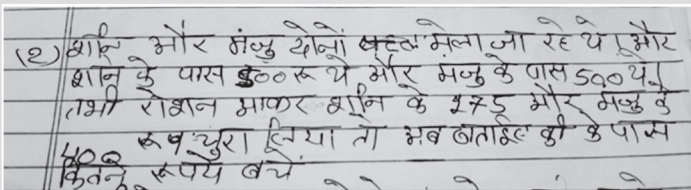 (2) शानि और मंजु दोनों मेला जा रहे थे। और
शानि के पास 500 रू थे और मंजु के पास 500 थे।
तभी रोशन आकर शानि के 275 और मंजु के
400 रू व चुरा लिया तो अब बताइए की के पास
कितने रूपये बचे